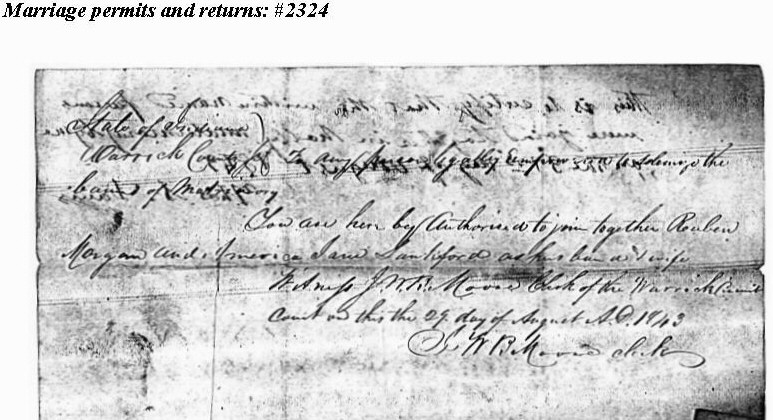 Marriage permits and returns: #2324
State of
Warrick County To any Person legally empowered to solemnize the
bands of Matrimony
You are here by Authorised to join together Reuben
Morgan and America Jane Lankford as husban & wife
Witness J. W. B. Moore Clerk of the Warrick Circuit
Court on this the 29 day of August A.D. 1843
J W B Moore clerk